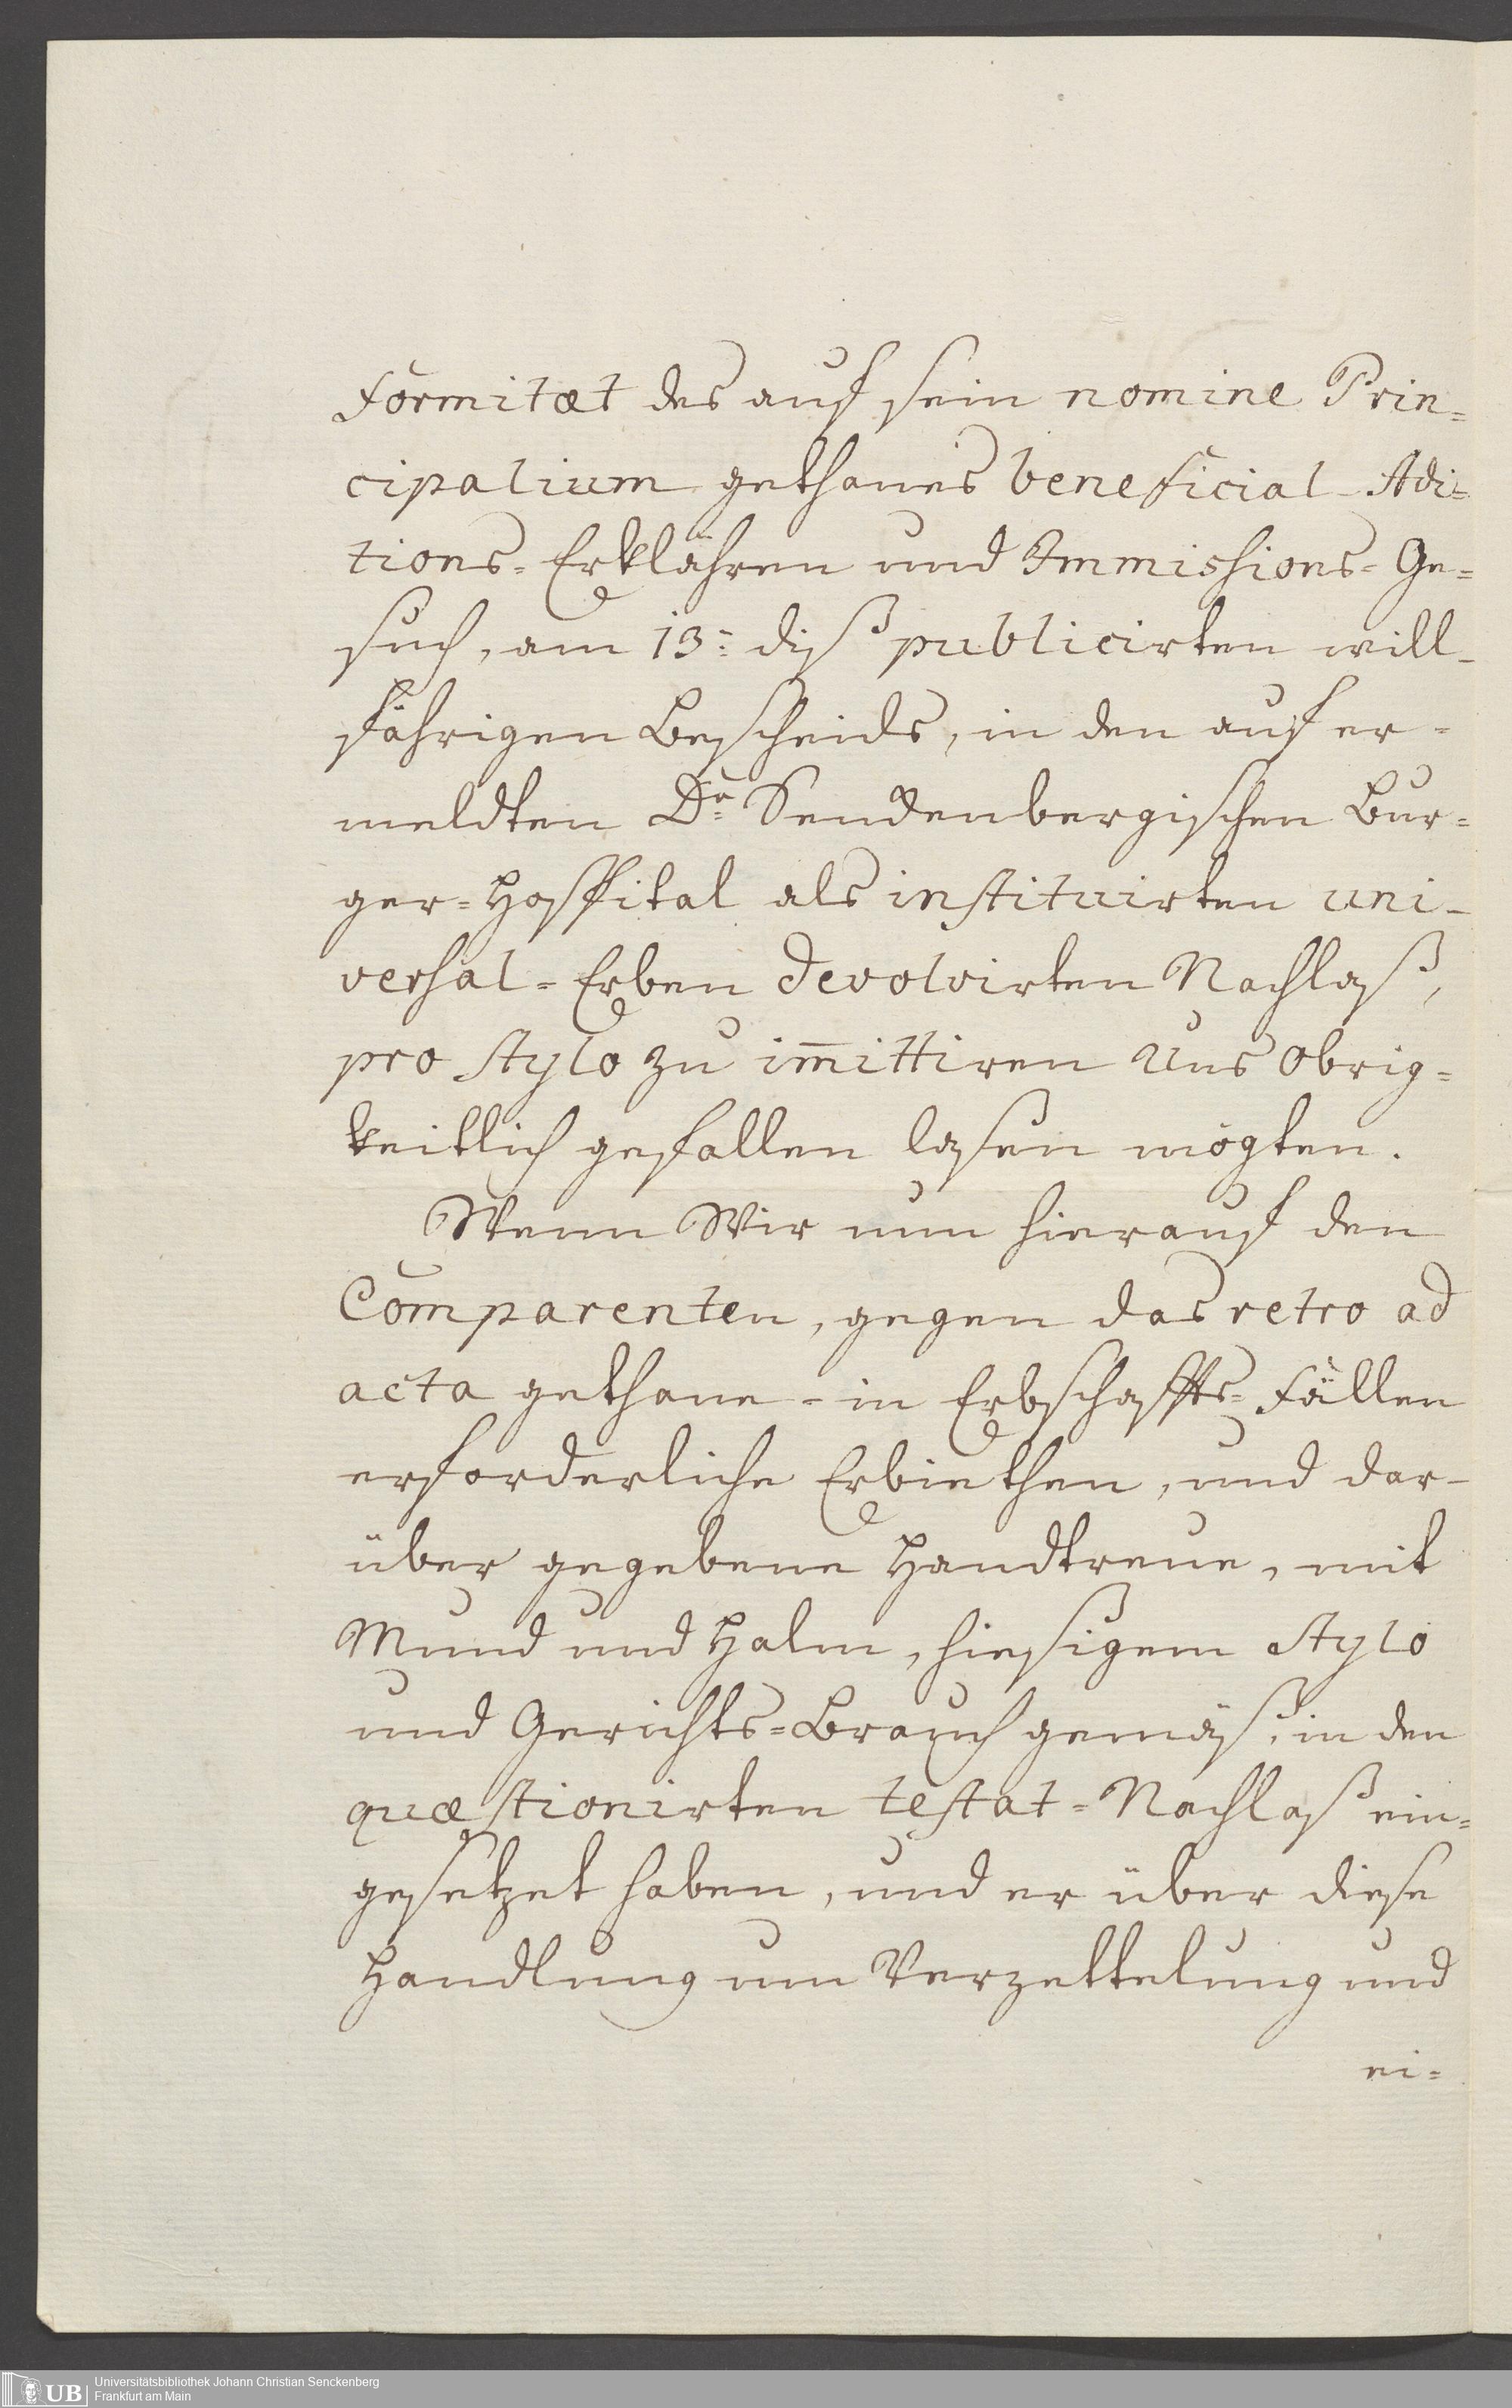 Formitæt des auf sein nomine Prin=
cipalium gethanes beneficial-Adi=
tions-Erklähren und Immissions-Ge=
such, am 13= diß publicirten will-
fährigen Bescheids, in den auf er-
meldten Dr Senckenbergischen Bur=
ger-Hospital als instituirten uni-
versal-Erben devolvirten Nachlaß,
pro stylo zu im̄ittiren Uns Obrig=
keitlich gefallen lasen mögten.
Wenn Wir nun hierauf den
Comparenten, gegen das retro ad
acta gethane- in Erbschaffts-Fällen
erforderliche Erbiethen, und dar-
über gegebene Handtreue, mit
Mund und Halm, hiesigem Stylo
und Gerichts-Brauch gemäß, in den
quæstionirten testat-Nachlaß ein=
gesetzet haben, und er über diese
Handlung um Verzettelung und
ei=
UB Universitätsbibliothek Johann Christian Senckenberg
Frankfurt am Main